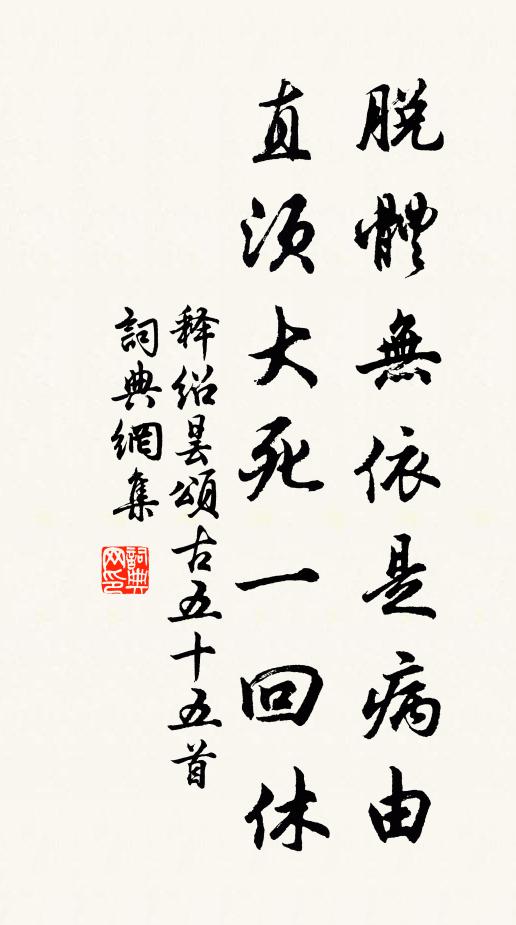 脫體無依是病由
直須大死一回休
释绍昙頌古五十五首
詞典網集
詞典网印